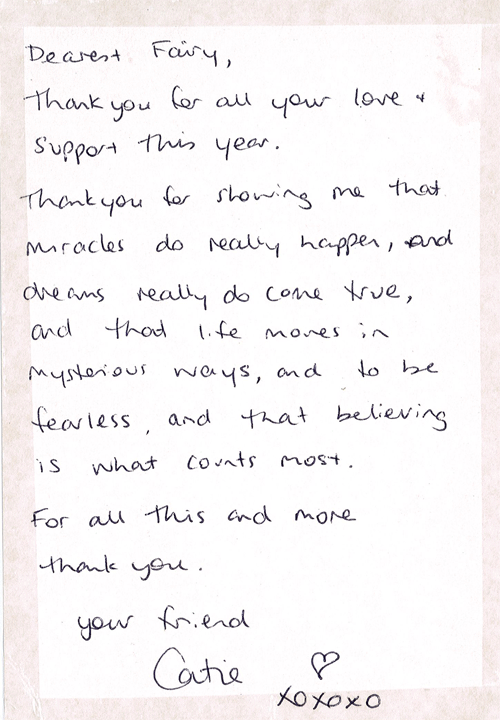 Dearest Fairy,
Thank you for all your love +
support this year.
Thank you for showing me that
miracles do really happen, and
dreams really do come true,
and that life moves in
mysterious ways, and to be
fearless, and that believing
is what counts most.
For all this and more
thank you.
your friend
Catie ♡
XOXOXO